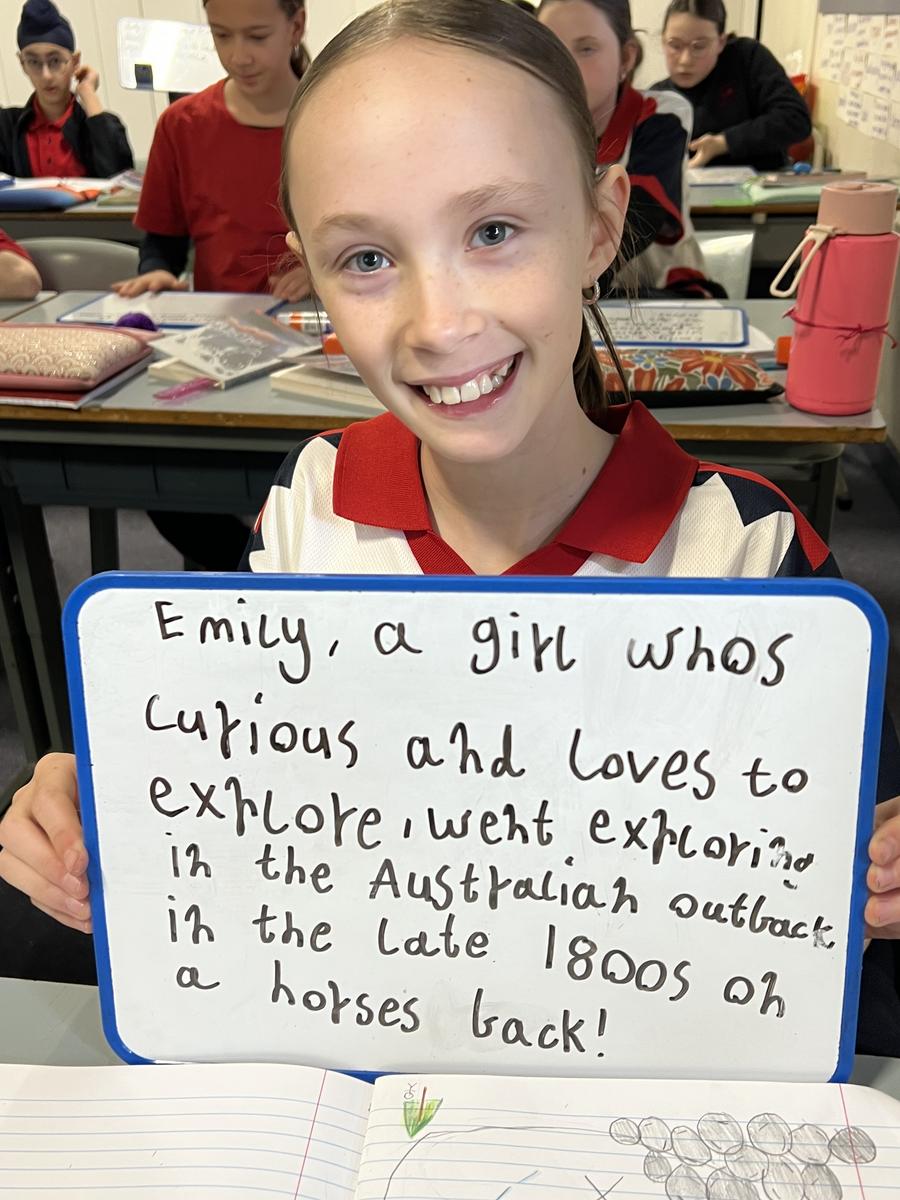 Emily, a girl whos
curious and loves to
explore, went exploring
in the Australian outback
in the late 1800s on
a horses back!